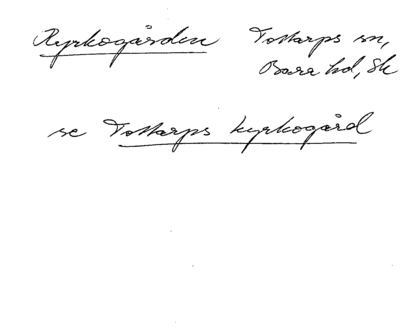 Kyrkogården Tottarps sn,
Bara hd, Sk
se Tottarps kyrkogård